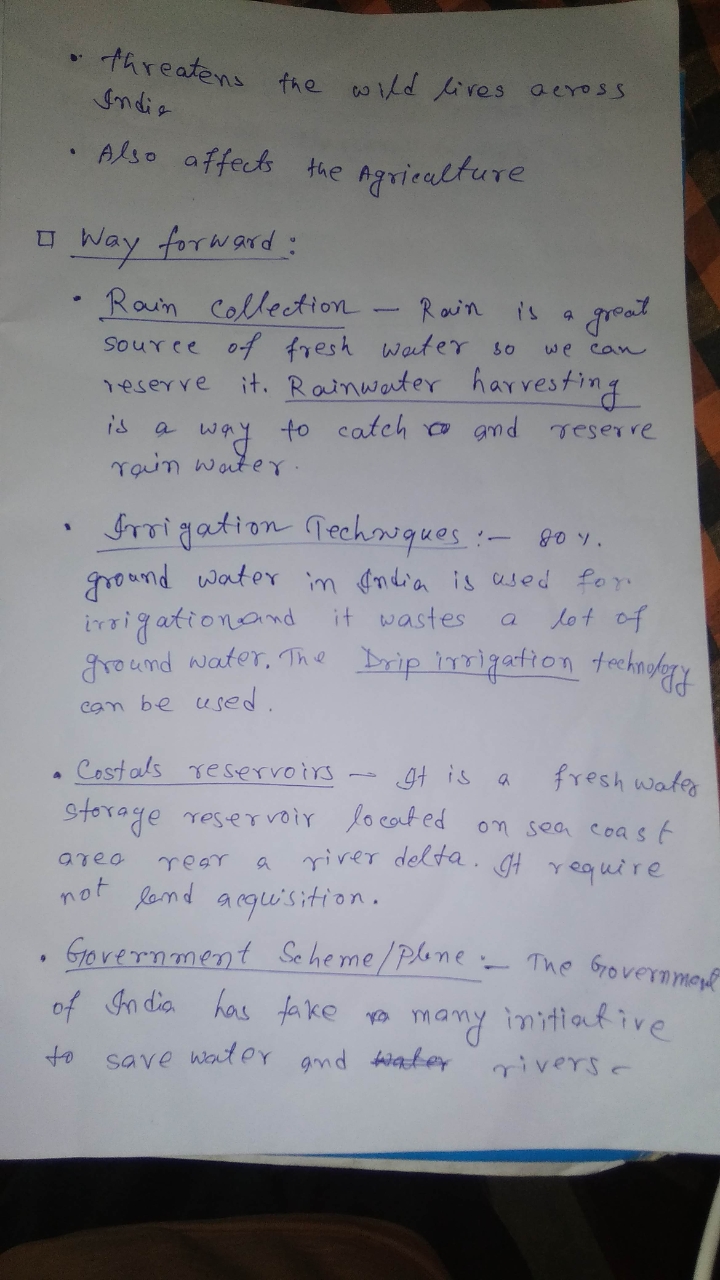 • threatens the wild lives across
India
• Also affects the Agriculture
□ Way forward :
• Rain collection — Rain is a great
source of fresh water so we can
reserve it. Rainwater harvesting
is a way to catch and reserve
rain water.
• Irrigation Techniques :— 80%.
ground water in India is used for
irrigation and it wastes a lot of
ground water. The Drip irrigation technology
can be used.
• Costals reservoirs — It is a fresh water
storage reservoir located on sea coast
area near a river delta. It require
not land acquisition.
• Government Scheme/Plane :— The Government
of India has take many initiative
to save water and water rivers -